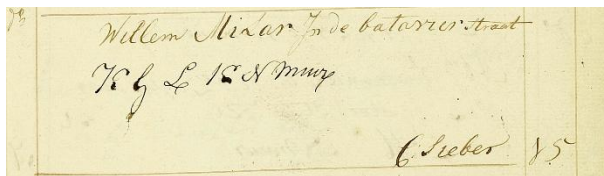 Willem Mizar In de batavier straat
K G L K N muur
C. Sieber 85